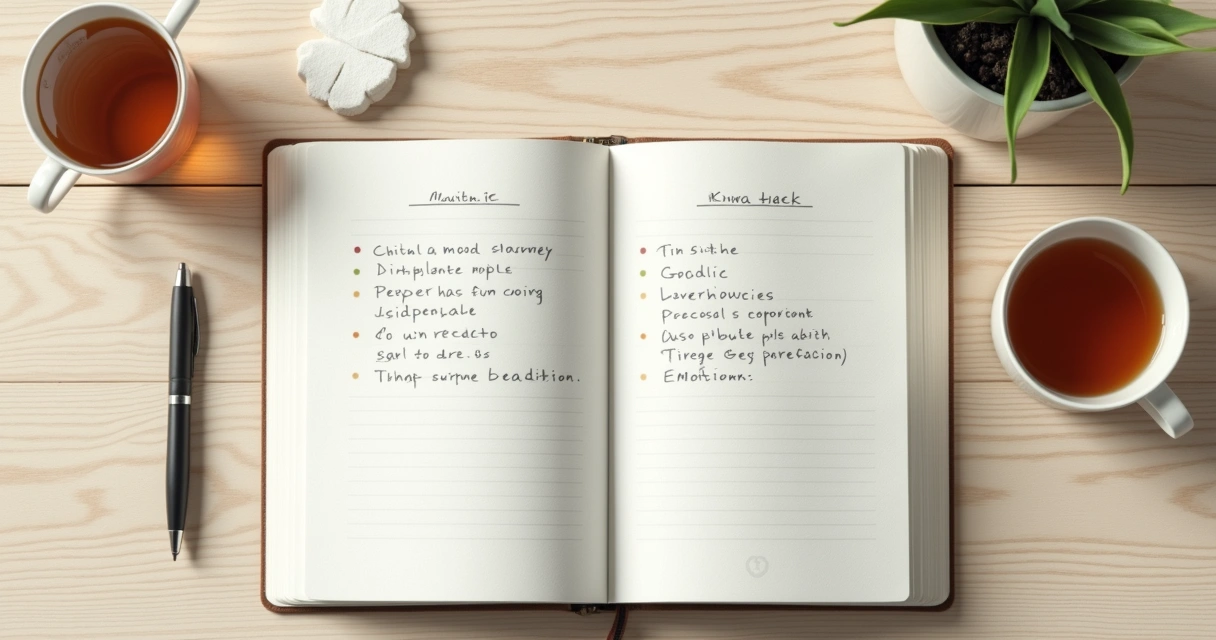 Chitnl a mood slourney
Dirhplante nople
Peeper has fun coving
Jsidpenlale
Co uin recacto
sarl to dre. os
Tihnp surpne beadition.
Knwa Hack
Tin siithe
Goodlic
Laverhowcies
Precosal s coporcont
Ouso p'bute pils abith
Tirege Geg parefacion)
Enlotionn: